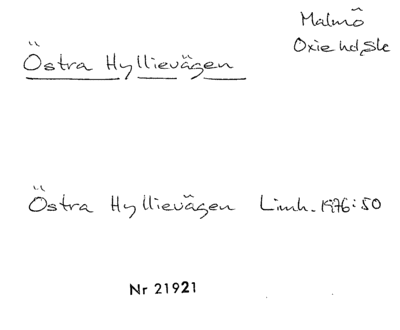 Malmö
Oxie hd, Sk
Östra Hyllievägen
Östra Hyllievägen Limh. 1976:50
Nr 21921